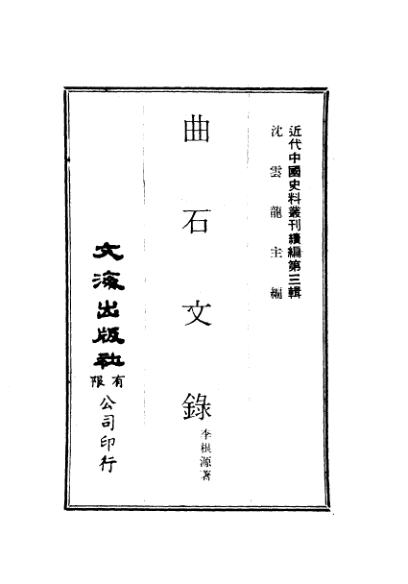 近代中國史料叢刊續編第三輯
沈雲龍主編
曲石文錄
李根源著
文海出版社
有限
公司印行